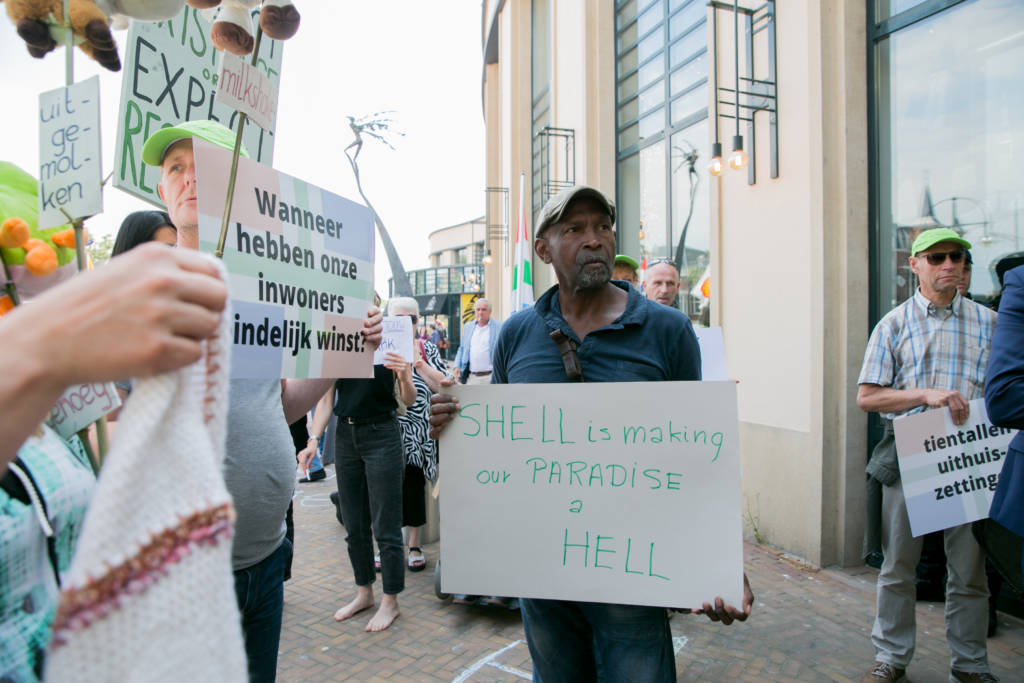 uit-
ge-
mol-
ken
EXPL
milksha
Wanneer
hebben onze
inwoners
indelijk winst?
SHELL is making
our PARADISE
a
HELL
tientallen
uithuis-
zettingen